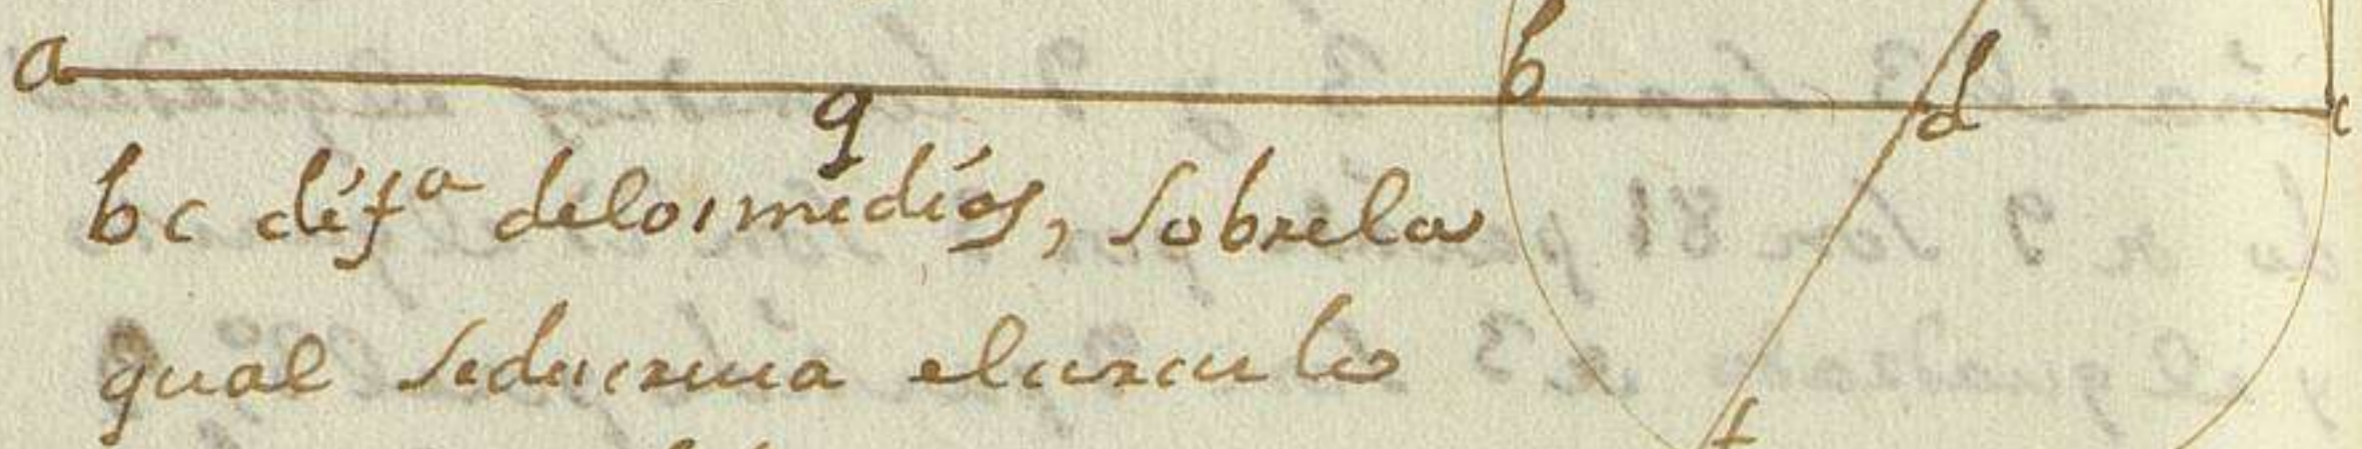 a q b d c
bc difª delos medios, sobre la
qual sedescriua el circulo
f